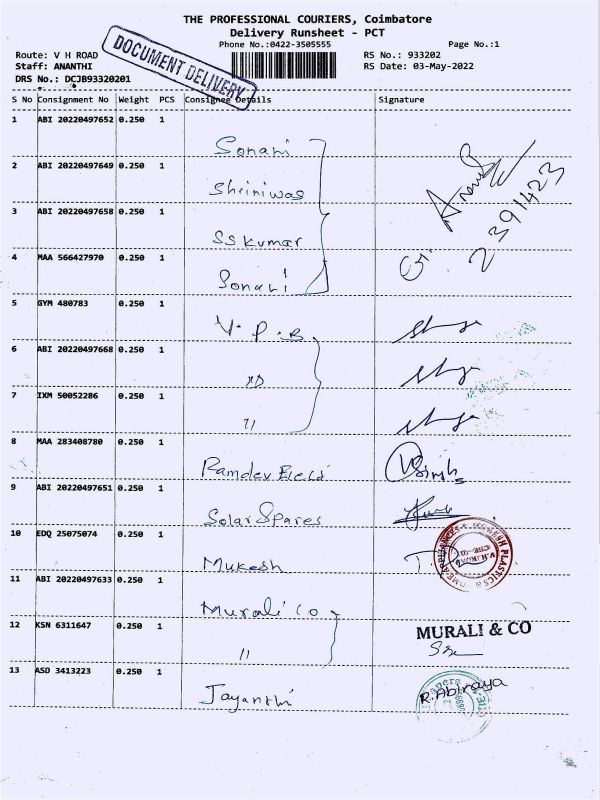 THE PROFESSIONAL COURIERS, Coimbatore
Delivery Runsheet - PCT
Phone No.:0422-3505555 Page No.:1
Route: V H ROAD RS No.: 933202
Staff: ANANTHI RS Date: 03-May-2022
DRS No.: DCJB93320201
DOCUMENT DELIVERY
S No Consignment No Weight PCS Consignee Details Signature
1 ABI 20220497652 0.250 1
Sonani
2 ABI 20220497649 0.250 1
Shriniwas
3 ABI 20220497658 0.250 1
SS Kumar
2391423
4 MAA 566427970 0.250 1
Sonani
5 GYM 480783 0.250 1
V. P. B
6 ABI 20220497668 0.250 1
7 IXM 50052286 0.250 1
"
8 MAA 283408780 0.250 1
Ramdev Field
Singh
9 ABI 20220497651 0.250 1
Solar Spares
10 EDQ 25075074 0.250 1
Mukesh
11 ABI 20220497633 0.250 1
Murali Co
12 KSN 6311647 0.250 1
MURALI & CO
"
13 ASD 3413223 0.250 1
Jayanthi
R. Abiraya